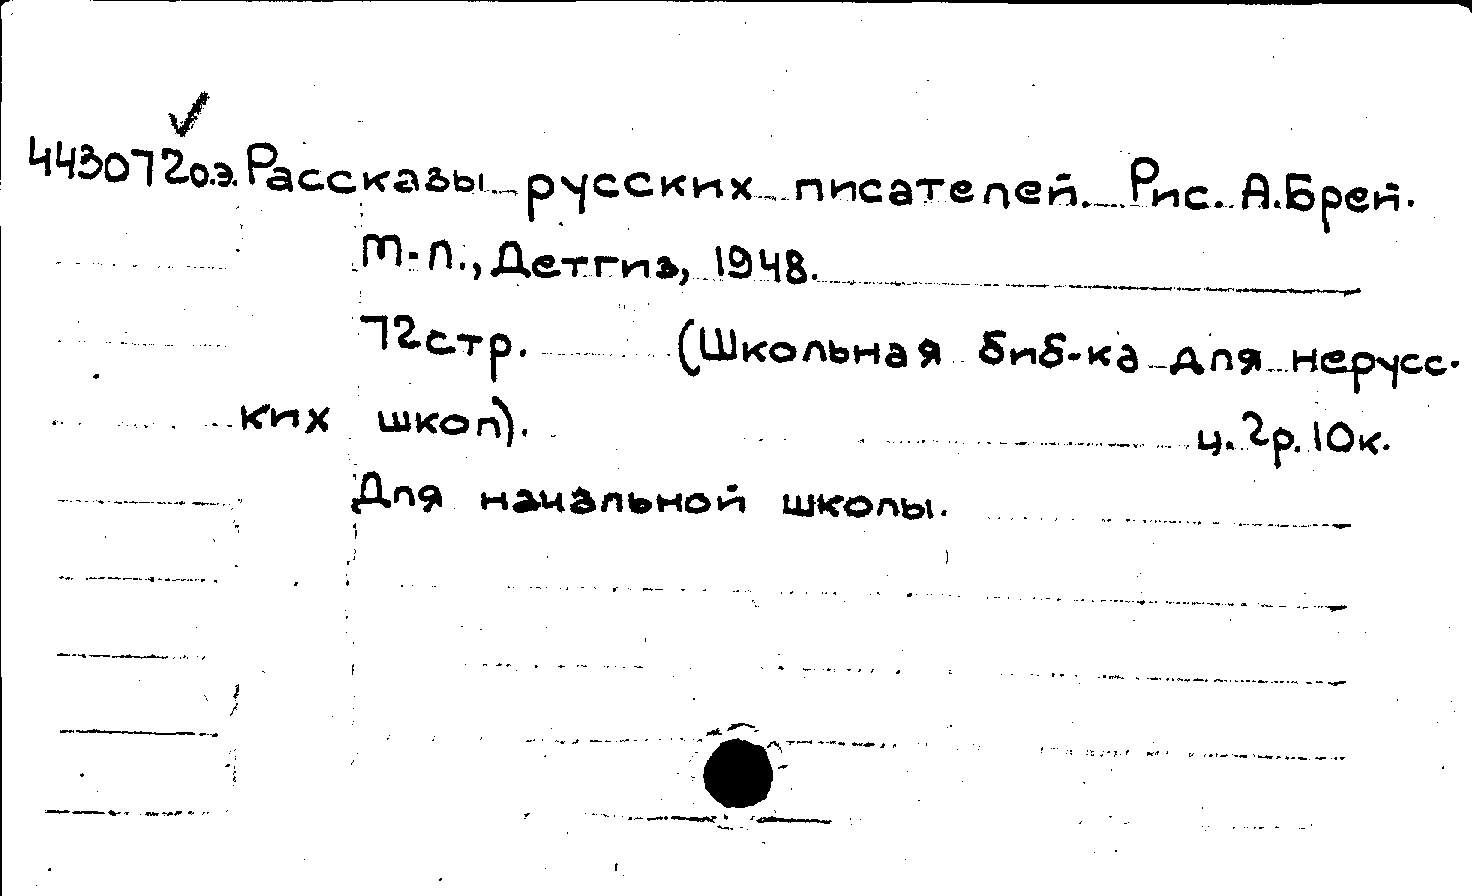 443072о.э. Рассказы русских писателей. Рис. А.Брей.
М.-Л., Детгиз, 1948.
72стр. (Школьная биб-ка для нерусс-
ких школ). ц.2р.10к.
Для начальной школы.